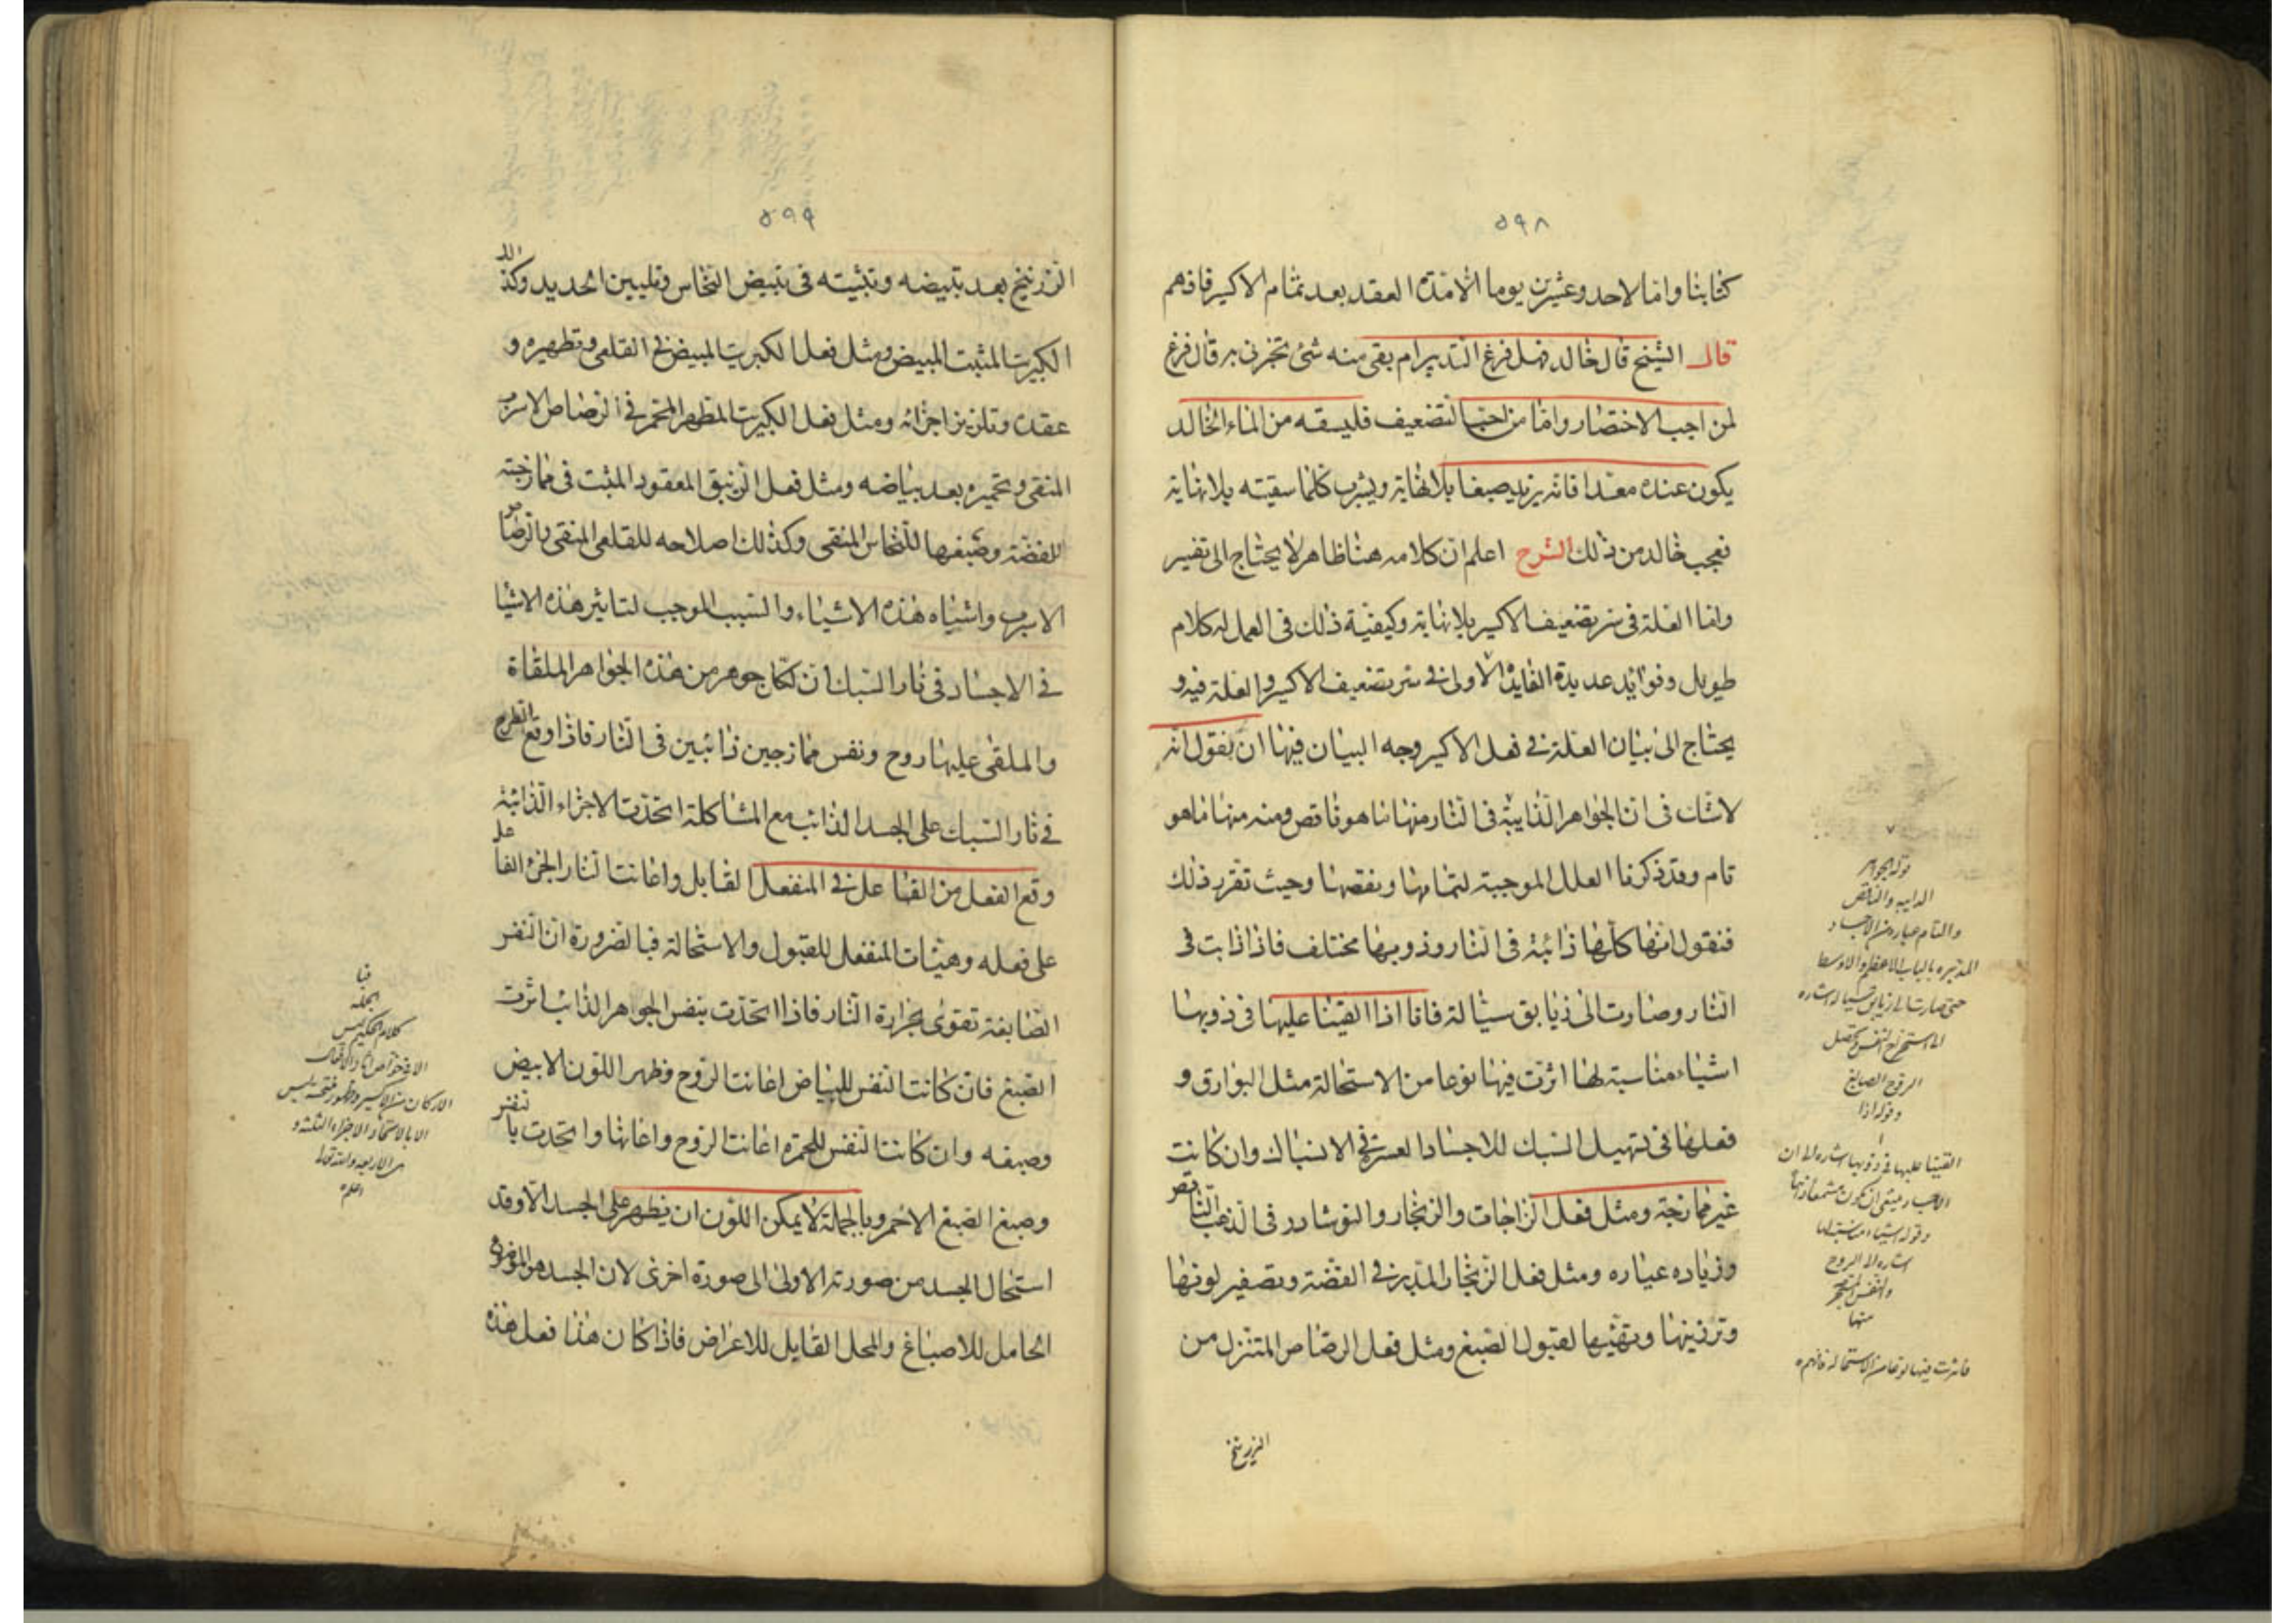 ٥٩٨
كتابنا واما الاحد وعشرين يوما الا مدة العقد بعد تمام الاكسير فافهم
قال الشيخ قال خالد فهل فرغ التدبير ام بقى منه شئ تخبرنى به قال فرغ
لمن احب الاختصار واما من احب التضعيف فليسقه من الماء الخالد
يكون عنده معدا فانه يزيد صبغا بلا نهاية ويشرب كلما سقيته بلا نهاية
فعجب خالد من ذلك الشرح اعلم ان كلامه هنا ظاهر لا يحتاج الى تفسير
واما العلة فى سر تضعيف الاكسير بلا نهاية وكيفية ذلك فى العمل له كلام
طويل وفوائد عديدة الفايدة الاولى فى سر تضعيف الاكسير والعلة فيه و
يحتاج الى بيان العلة فى فعل الاكسير وجه البيان فيها ان نقول انه
لا شك فى ان الجواهر الذايبة فى النار منها ما هو ناقص ومنه منها ما هو
تام وقد ذكرنا العلل الموجبة لتمامها ونقصها وحيث تقرر ذلك
فنقول انها كلها ذائبة فى النار وذوبها مختلف فاذا ذابت فى
النار وصارت الى زيابق سيالة فانا اذا القينا عليها فى ذوبها
اشياء مناسبة لها اثرت فيها نوعا من الاستحالة مثل البوارق و
فعلها فى تسهيل السبك للاجساد العسرة فى الانسباك وان كانت
غير ممازجة ومثل فعل الزاجات والزنجار والنوشادر فى الذهب الناقص
وزياده عياره ومثل فعل الزنجار المدبر فى الفضة وتصفير لونها
وترزينها وتهيئها لقبول الصبغ ومثل فعل الرصاص المتنزل من
الزرنيخ
قوله الجواهر
الذايبه والناقص
والتام عباره من الاجساد
المدبره بالباب الاعظم والاوسط
الروح الصابغ
وقوله اذا
القينا عليها فى ذوبها اشاره الى ان
وقوله اشياء مناسبة لها
اشاره الى الروح
منها
فاثرت فيها نوعا من الاستحاله فافهم
٥٩٩
الزرنيخ بعد تبيضه وتثبيته فى تبيض النحاس وتليين الحديد وكذلك
الكبريت المثبت المبيض ومثل فعل الكبريت المبيض فى القلعى وتطهيره و
عقده وتلزيز اجزائه ومثل فعل الكبريت المطهر المحمر فى الرصاص الاسرب
المنقى وتحميره بعد بياضه ومثل فعل الزنبق المعقود المثبت فى ممازجته
للفضة وصبغها للنحاس المنقى وكذلك اصلاحه للقلعى المنقى بالرصاص
الاسرب واشباه هذه الاشياء والسبب الموجب لتاثير هذه الاشيا
فى الاجساد فى نار السبك ان لكل جوهر من هذه الجواهر الملقاة
والملقى عليها روح ونفس ممازجين ذائبين فى النار فاذا وقع الطرح
فى نار السبك على الجسد الذائب مع المشاكلة اتحدت الاجزاء الذائبة
وقع الفعل من الفاعل فى المنفعل القابل واعانت النار الجزء الفاعل
على فعله وهيئات المنفعل للقبول والاستحالة فبالضرورة ان النفس
الصابغة تقوى بحرارة النار فاذا اتحدت بنفس الجواهر الذائب اثرت
الصبغ فان كانت النفس للبياض اعانت الروح وظهر اللون الابيض
وصبغه وان كانت النفس للحمرة اعانت الروح واعانها واتحدت بالنفس
وصبغ الصبغ الاحمر وبالجملة لا يمكن اللون ان يظهر على الجسد الا وقد
استحال الجسد من صورته الاولى الى صورة اخرى لان الجسد هو
الحامل للاصباغ والمحل القابل للاعراض فاذا كان هذا فعل هذه
الجمله
كلام الحكيم ليس
الا بالاتحاد الاجزاء الثلثه و
الاربعه والله تعالى
اعلم